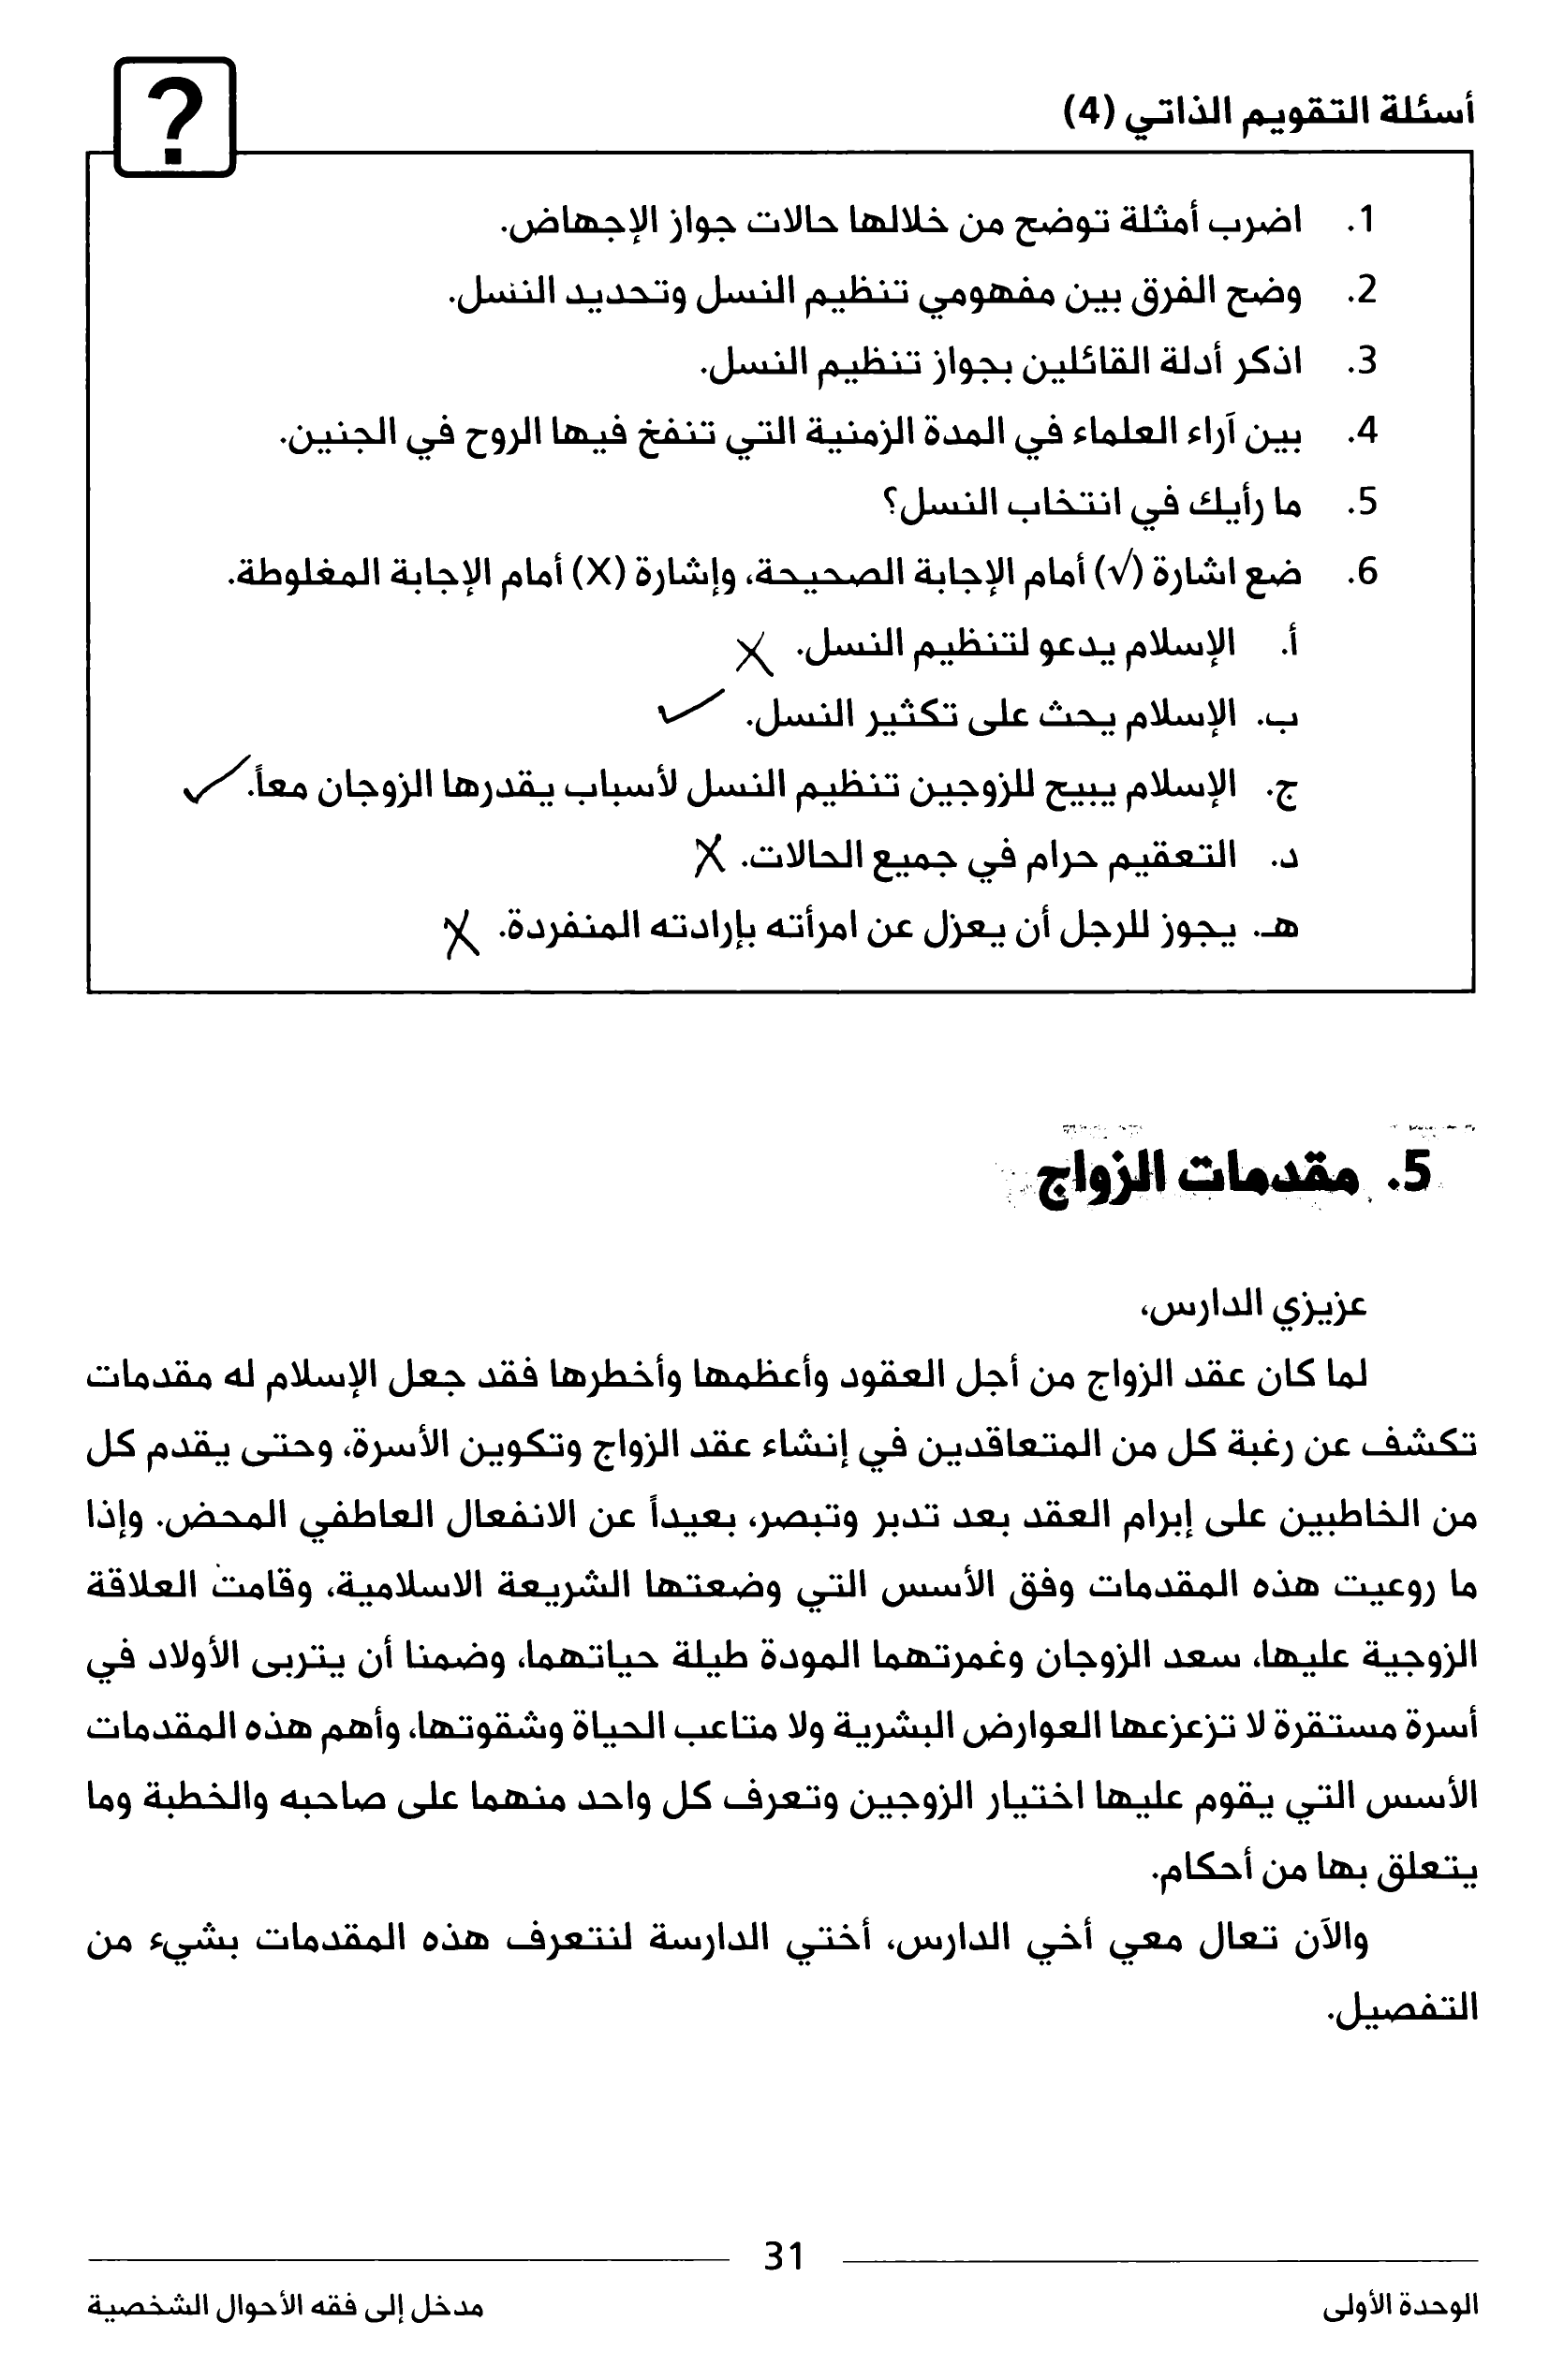 أسئلة التقويم الذاتي (4)
?
1. اضرب أمثلة توضح من خلالها حالات جواز الإجهاض.
2. وضح الفرق بين مفهومي تنظيم النسل وتحديد النسل.
3. اذكر أدلة القائلين بجواز تنظيم النسل.
4. بين آراء العلماء في المدة الزمنية التي تنفخ فيها الروح في الجنين.
5. ما رأيك في انتخاب النسل؟
6. ضع اشارة (√) أمام الإجابة الصحيحة، وإشارة (X) أمام الإجابة المغلوطة.
أ. الإسلام يدعو لتنظيم النسل. X
ب. الإسلام يحث على تكثير النسل. ✓
ج. الإسلام يبيح للزوجين تنظيم النسل لأسباب يقدرها الزوجان معاً. ✓
د. التعقيم حرام في جميع الحالات. X
هـ. يجوز للرجل أن يعزل عن امرأته بإرادته المنفردة. X
5. مقدمات الزواج
عزيزي الدارس،
لما كان عقد الزواج من أجل العقود وأعظمها وأخطرها فقد جعل الإسلام له مقدمات
تكشف عن رغبة كل من المتعاقدين في إنشاء عقد الزواج وتكوين الأسرة، وحتى يقدم كل
من الخاطبين على إبرام العقد بعد تدبر وتبصر، بعيداً عن الانفعال العاطفي المحض. وإذا
ما روعيت هذه المقدمات وفق الأسس التي وضعتها الشريعة الاسلامية، وقامت العلاقة
الزوجية عليها، سعد الزوجان وغمرتهما المودة طيلة حياتهما، وضمنا أن يتربى الأولاد في
أسرة مستقرة لا تزعزعها العوارض البشرية ولا متاعب الحياة وشقوتها، وأهم هذه المقدمات
الأسس التي يقوم عليها اختيار الزوجين وتعرف كل واحد منهما على صاحبه والخطبة وما
يتعلق بها من أحكام.
والآن تعال معي أخي الدارس، أختي الدارسة لنتعرف هذه المقدمات بشيء من
التفصيل.
31
الوحدة الأولى
مدخل إلى فقه الأحوال الشخصية